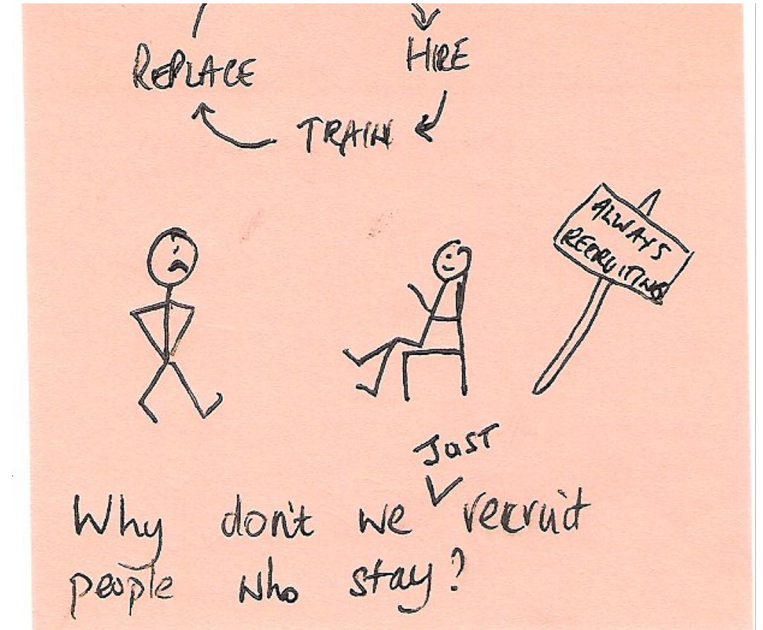 REPLACE HIRE
TRAIN
ALWAYS
RECRUITING
JUST
Why don't we recruit
people who stay?